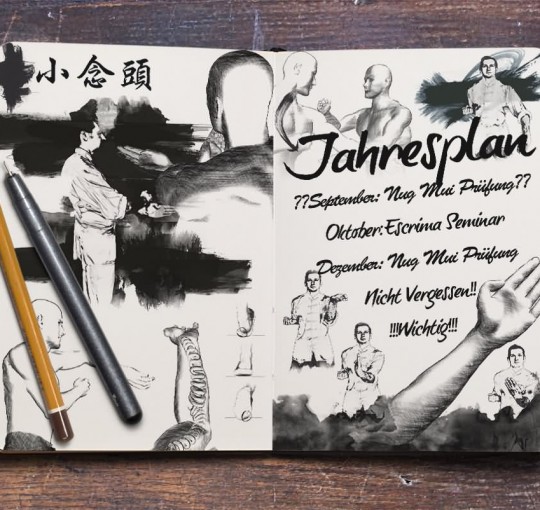 小念頭
Jahresplan
??September: Nug Mui Prüfung??
Oktober: Escrima Seminar
Dezember: Nug Mui Prüfung
Nicht Vergessen!!
!!!Wichtig!!!